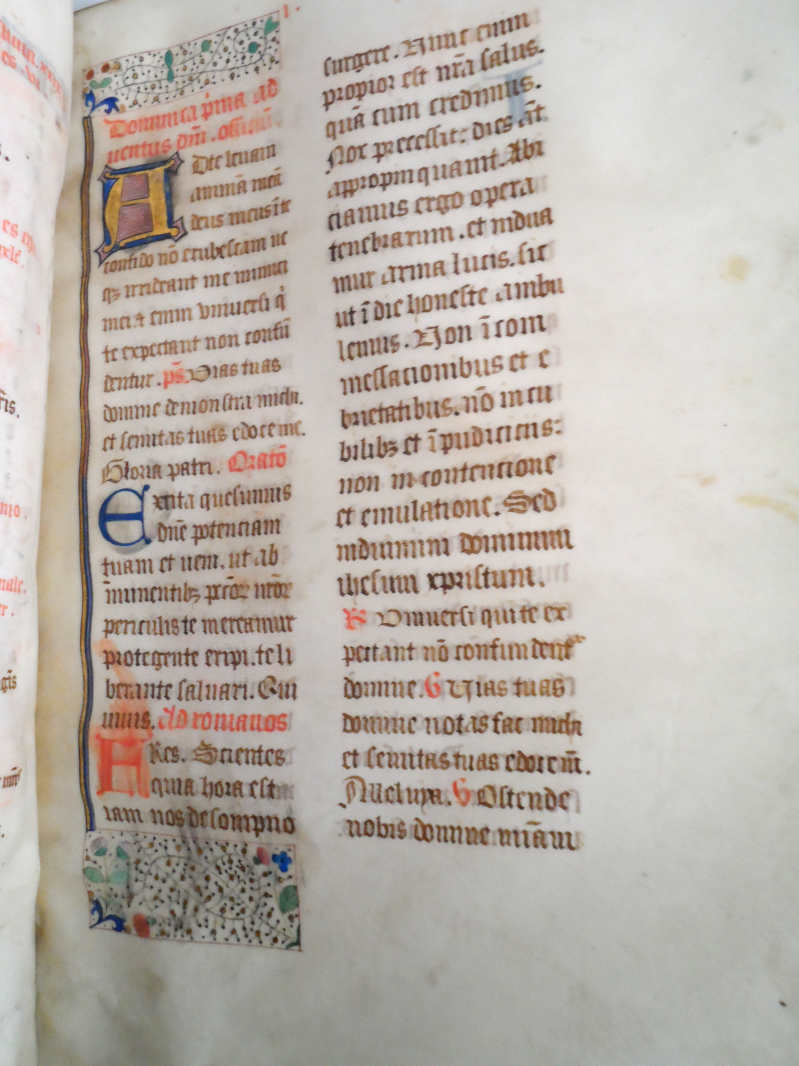 Dominica p̄ma ad
uentus dm̄. offm̄
Ad te leuaui
animā meā
deus meus ī te
confido nō erubescam ne
qꝫ irrideant me inimici
mei. et enim vniuersi q̄
te expectant non confū
dentur. ps̄. Vias tuas
domine demonstra michi.
et semitas tuas edoce me.
Gloria patri. Oratō
Excita quesumus
dn̄e potenciam
tuam et ueni. ut ab
īminentibꝫ pcc̄oꝝ nr̄oꝝ
periculis te mereamur
protegente eripi. te li
berante saluari. Qui
uiuis. Ad romanos
FRes. Scientes
quia hora est
iam nos de sompno
surgere. Nunc enim
propior est nr̄a salus.
quā cum credimus.
Nox precessit: dies āt
appropinquauit. Abi
ciamus ergo opera
tenebrarum. et indua
mur arma lucis. sic
ut ī die honeste ambu
lemus. Non ī com
messacionibus et e
brietatibus. nō in cu
bilibꝫ et īpudiciciis:
non in contencione
et emulatione. Sed
induimini dominum
ihesum xpristum.
R Vniuersi qui te ex
pectant nō confundent᷒
domine. V Vias tuas
domine notas fac michi
et semitas tuas edoce m̄.
Alleluya. V Ostende
nobis domine mīam